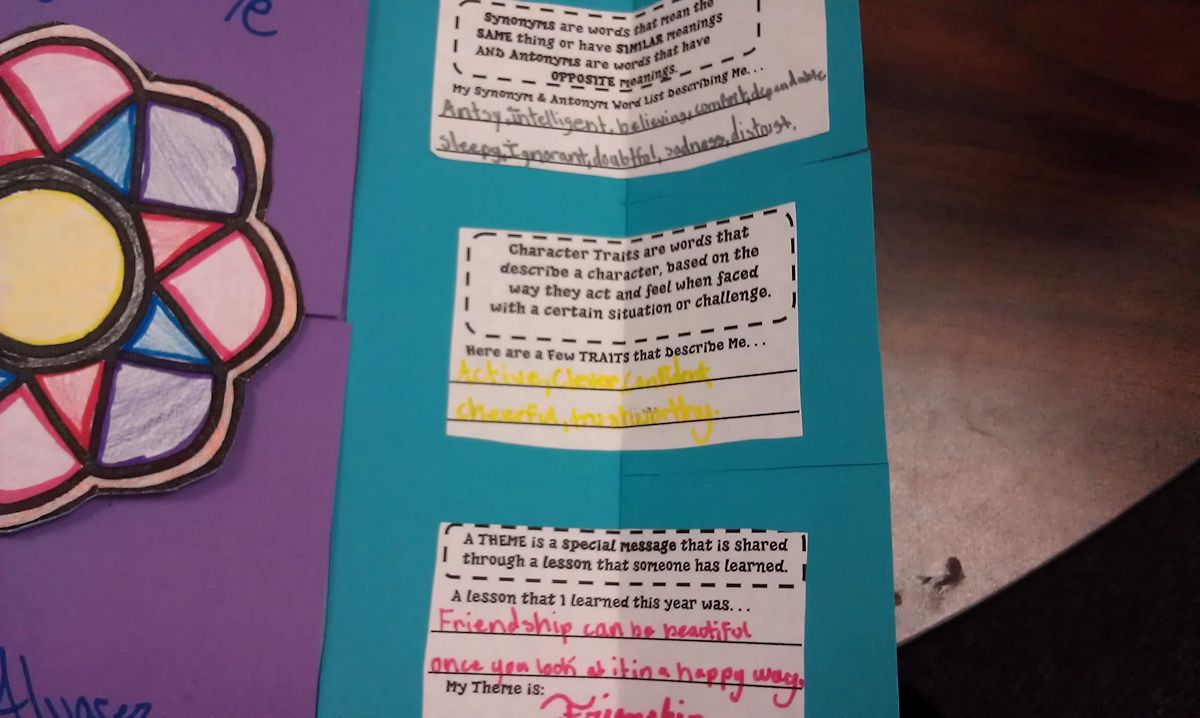 Synonyms are words that mean the
SAME thing or have SIMILAR meanings
AND Antonyms are words that have
OPPOSITE meanings.
My Synonym & Antonym Word List Describing Me. . .
Antsy, intelligent, believing, comfort, dependable
sleepy, ignorant, doubtful, sadness, distrust.
Character Traits are words that
describe a character, based on the
way they act and feel when faced
with a certain situation or challenge.
Here are a Few TRAITS that Describe Me. . .
Active, Clever, Confident
cheerful, trustworthy.
A THEME is a special message that is shared
through a lesson that someone has learned.
A lesson that I learned this year was. . .
Friendship can be beautiful
once you look at it in a happy way.
My Theme is:
Friendship